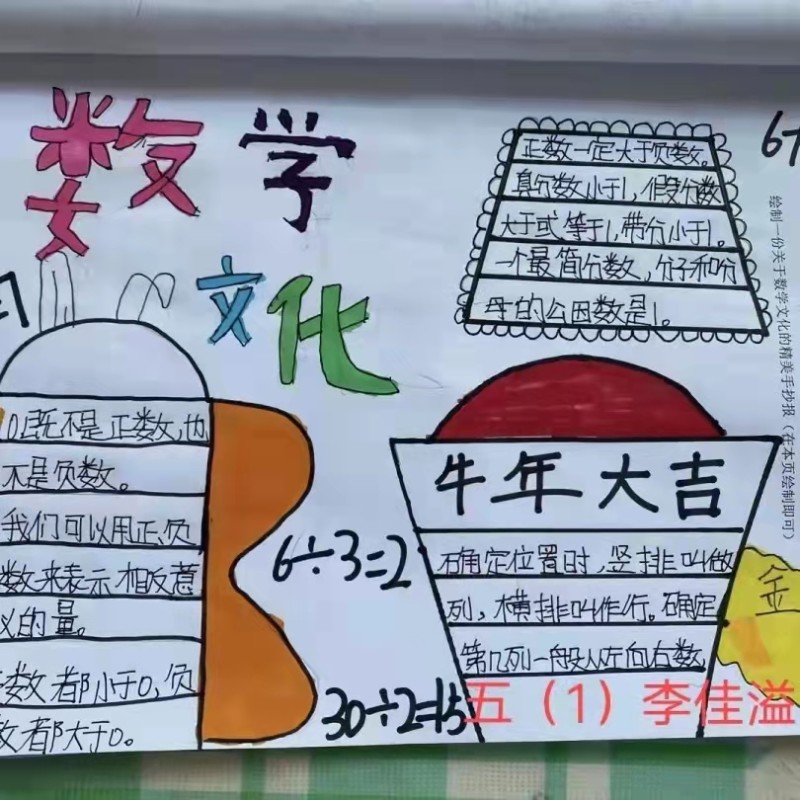 数学
文化
正数一定大于负数。
真分数小于1,假分数
大于或等于1,带分小于1。
一个最简分数,分子和分
母的公因数是1。
绘制一份关于数学文化的精美手抄报(在本页绘制即可)
0既不是正数,也
不是负数。
我们可以用正、负
数来表示相反意
义的量。
数都小于0,负
数都大于0。
6÷3=2
30÷2=15
牛年大吉
确定位置时,竖排叫做
列,横排叫作行。确定
第几列一般从左向右数,
金
五(1)李佳溢